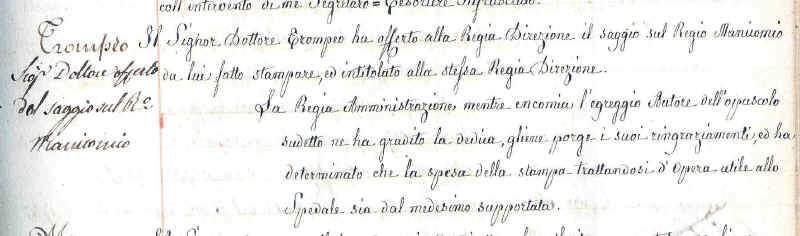 coll'intervento di me Segretaro = Tesoriere infrascritto.
Trompeo
Sig.r Dottore offerta
del saggio sul R.o
Manicomio
Il Signor Dottore Trompeo ha offerto alla Regia Direzione il saggio sul Regio Manicomio
da lui fatto stampare, ed intitolato alla stessa Regia Direzione.
La Regia Amministrazione, mentre encomia l'egreggio Autore dell'opuscolo
sudetto ne ha gradito la dedica, gliene porge i suoi ringraziamenti, ed ha
determinato che la spesa della stampa trattandosi d'Opera utile allo
Spedale sia dal medesimo supportata.